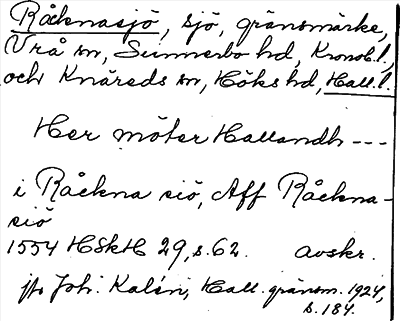 Råcknasjö, sjö, gränsmärke,
Vrå sn, Sunnerbo hd, Kronob. l.,
och Knäreds sn, Höks hd, Hall. l.
Her möter Hallandh ---
i Råckna siö, Aff Råckna-
siö
1554 HSkH 29, s. 62. avskr.
jfr Joh. Kalén, Hall. gränsm. 1924,
s. 184.